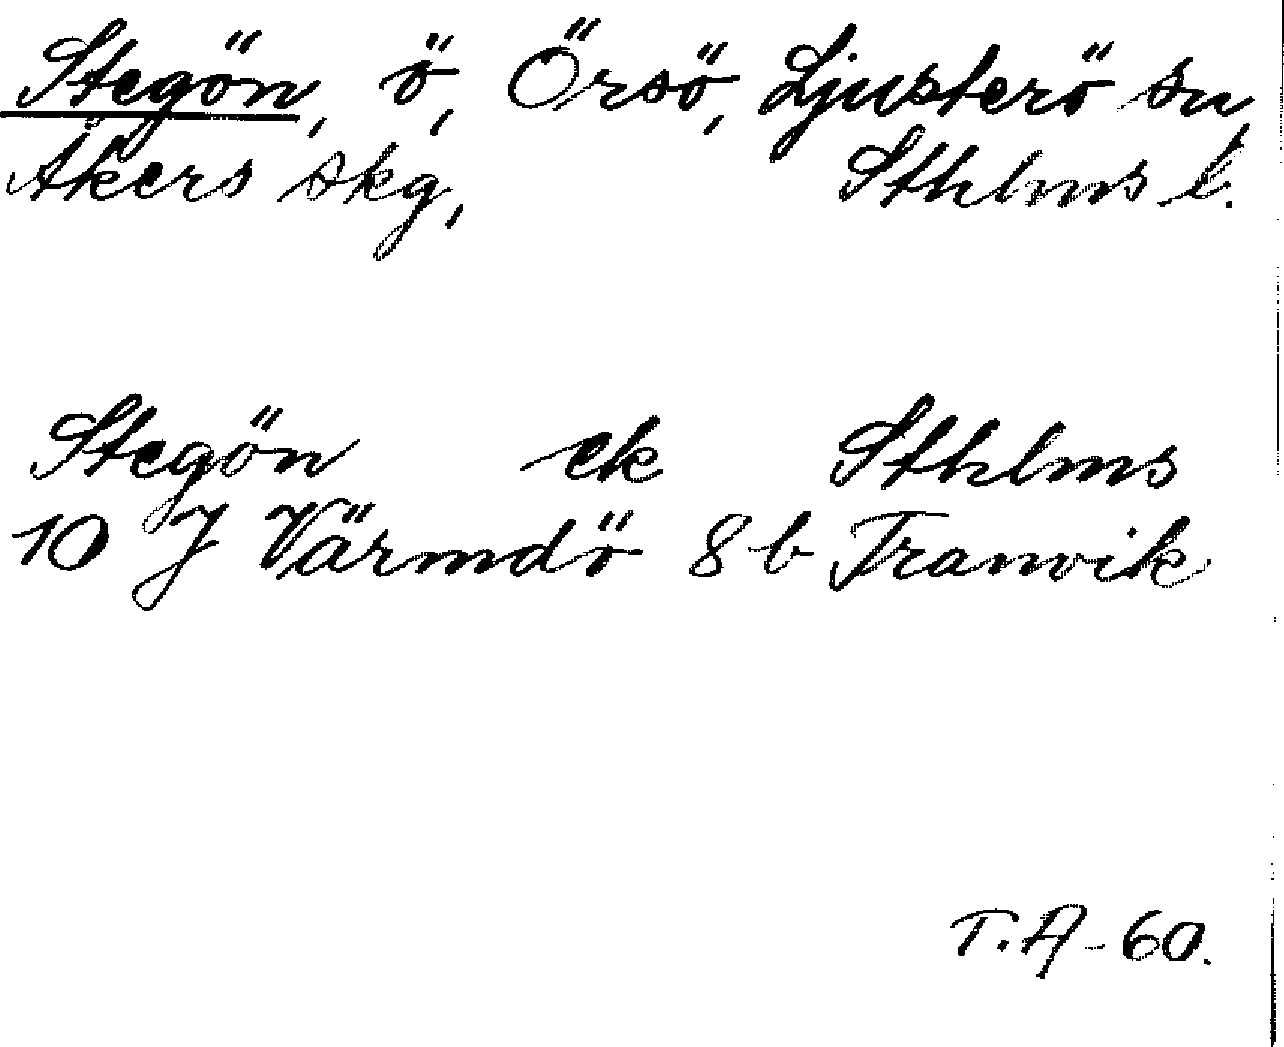 Stegön, ö, Örsö, Ljusterö sn,
Åkers skg, Sthlms l.
Stegön ek Sthlms
10 J Värmdö 8 b Tranvik
T.A-60.